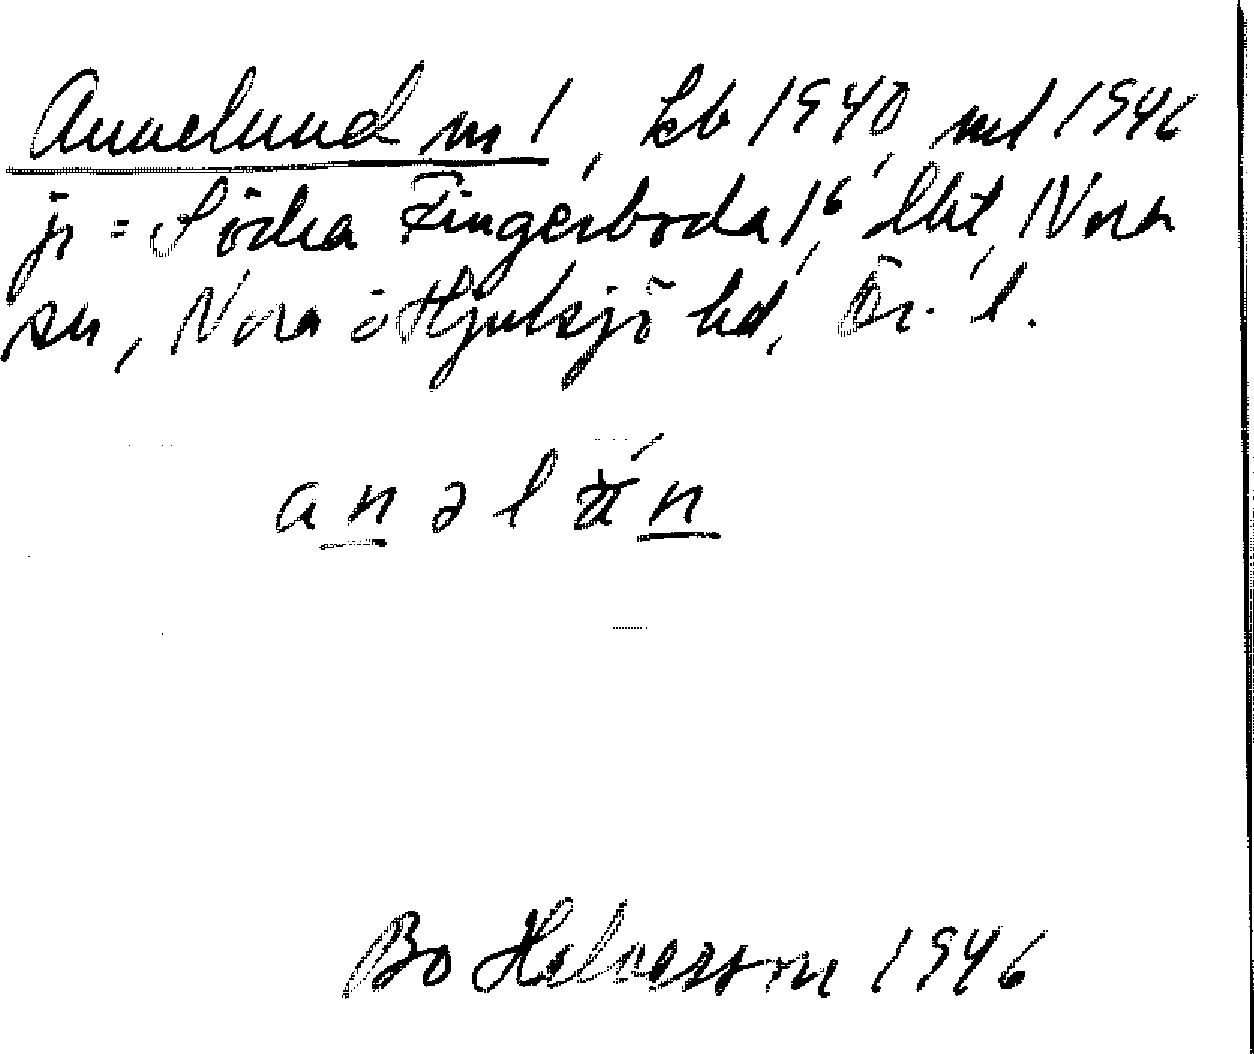 Annelund nr 1, kb 1940, ml 1946
jr = Södra Fingerboda 1⁶, lht, Nora
sn, Nora o Hjulsjö hd, Ör. l.
anəl n
Bo Halvarsson 1946